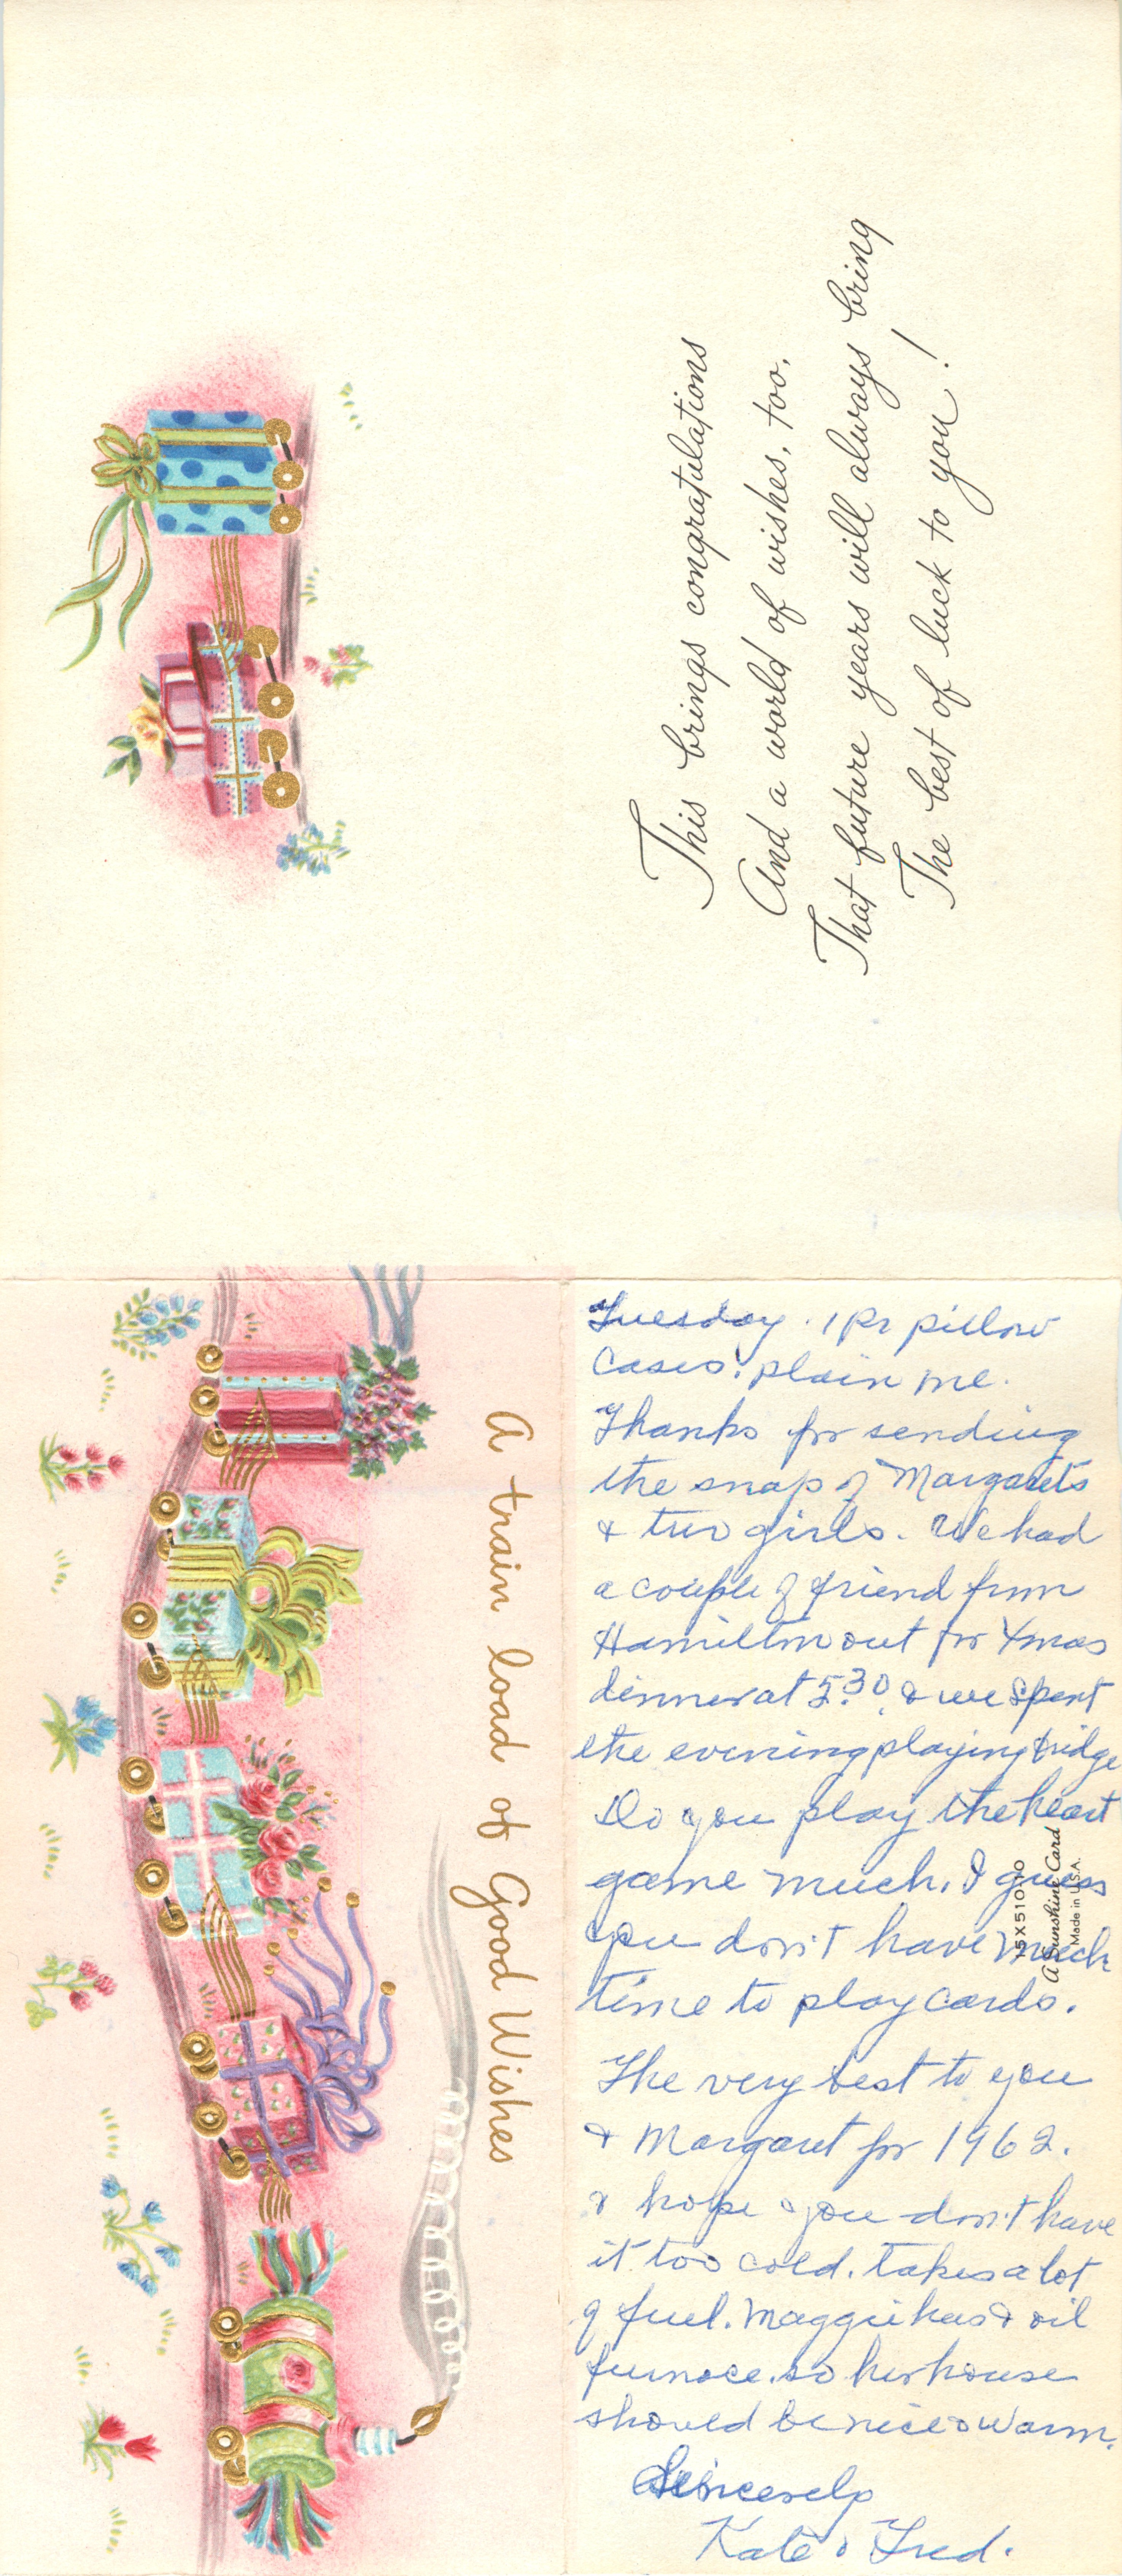 This brings congratulations
And a world of wishes, too,
That future years will always bring
The best of luck to you!
A train load of Good Wishes
Tuesday. 1 Pr pillow
cases. plain me.
Thanks for sending
the snap of Margarets
& two girls. We had
a couple of friend from
Hamilton out for Xmas
dinner at 5.30. & we spent
the evening playing bridge
Do you play the heart
game much. I guess
you don't have much
time to play cards.
The very best to you
& Margaret for 1962.
& hope you don't have
it too cold. takes a lot
of fuel. Maggie has oil
furnace. so her house
should be nice & warm.
Sincerely
Kate & Fred.
15X510-10
A Sunshine Card
Made in U.S.A.